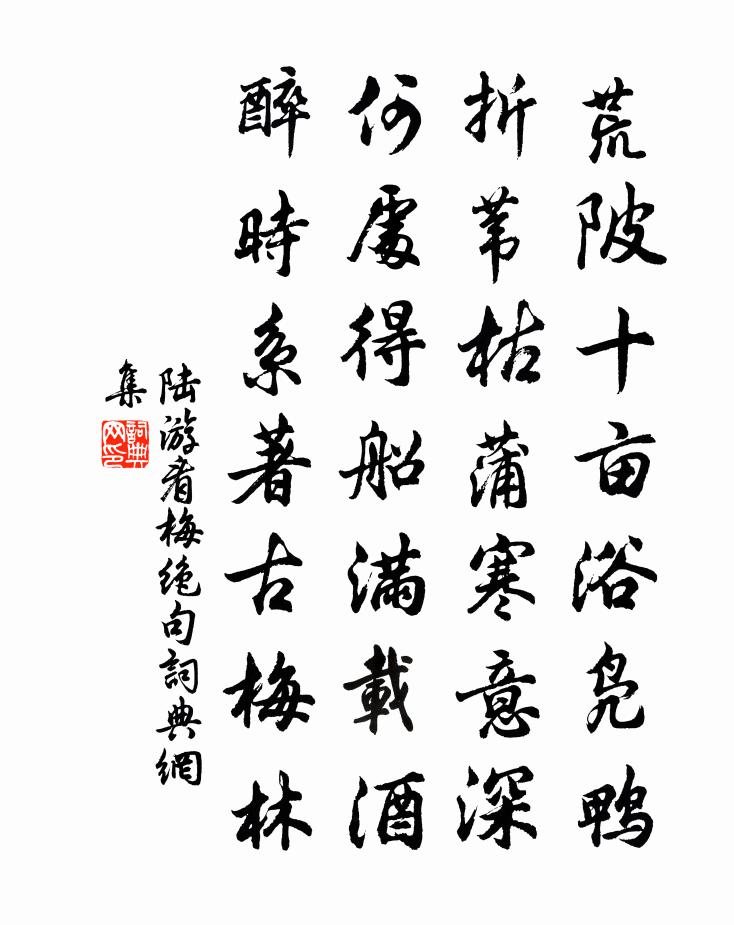 荒陂十亩浴凫鸭
折苇枯蒲寒意深
何處得船满載酒
醉時系著古梅林
陆游看梅绝句詞典網
集
詞典
网印